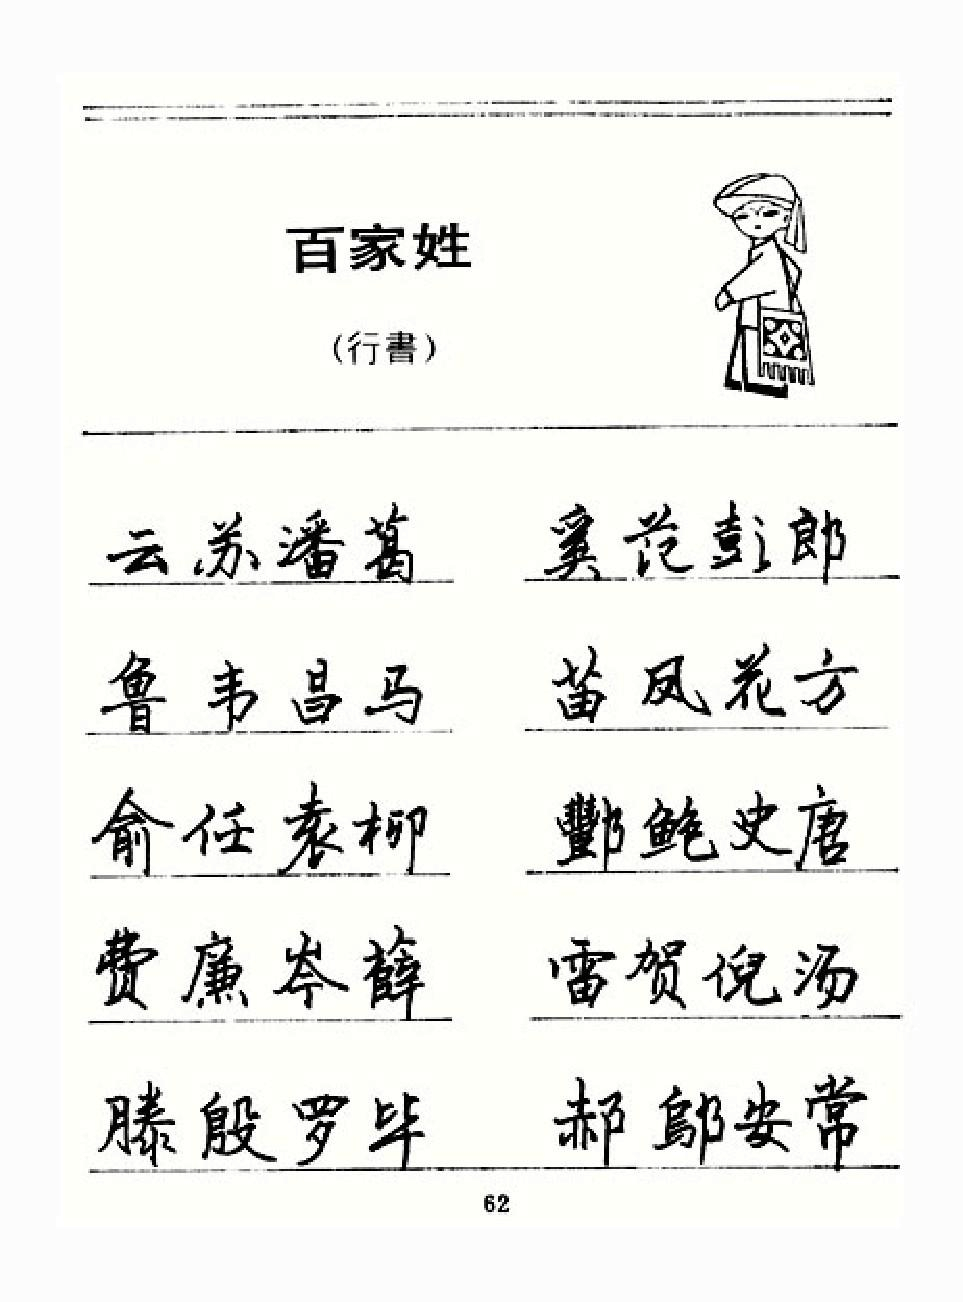 百家姓
(行書)
云苏潘葛 奚范彭郎
鲁韦昌马 苗凤花方
俞任袁柳 酆鲍史唐
费廉岑薛 雷贺倪汤
滕殷罗毕 郝邬安常
62